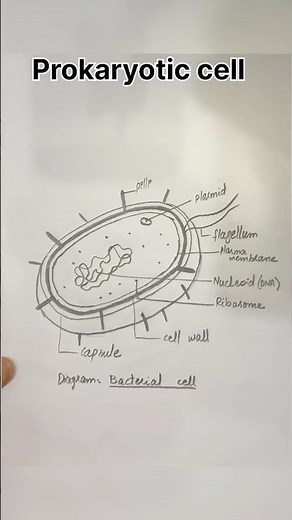 Prokaryotic cell
pille
plasmid
flagellum
plasma
membrane
Nucleoid (DNA)
Ribosome
cell wall
capsule
Diagram: Bacterial cell